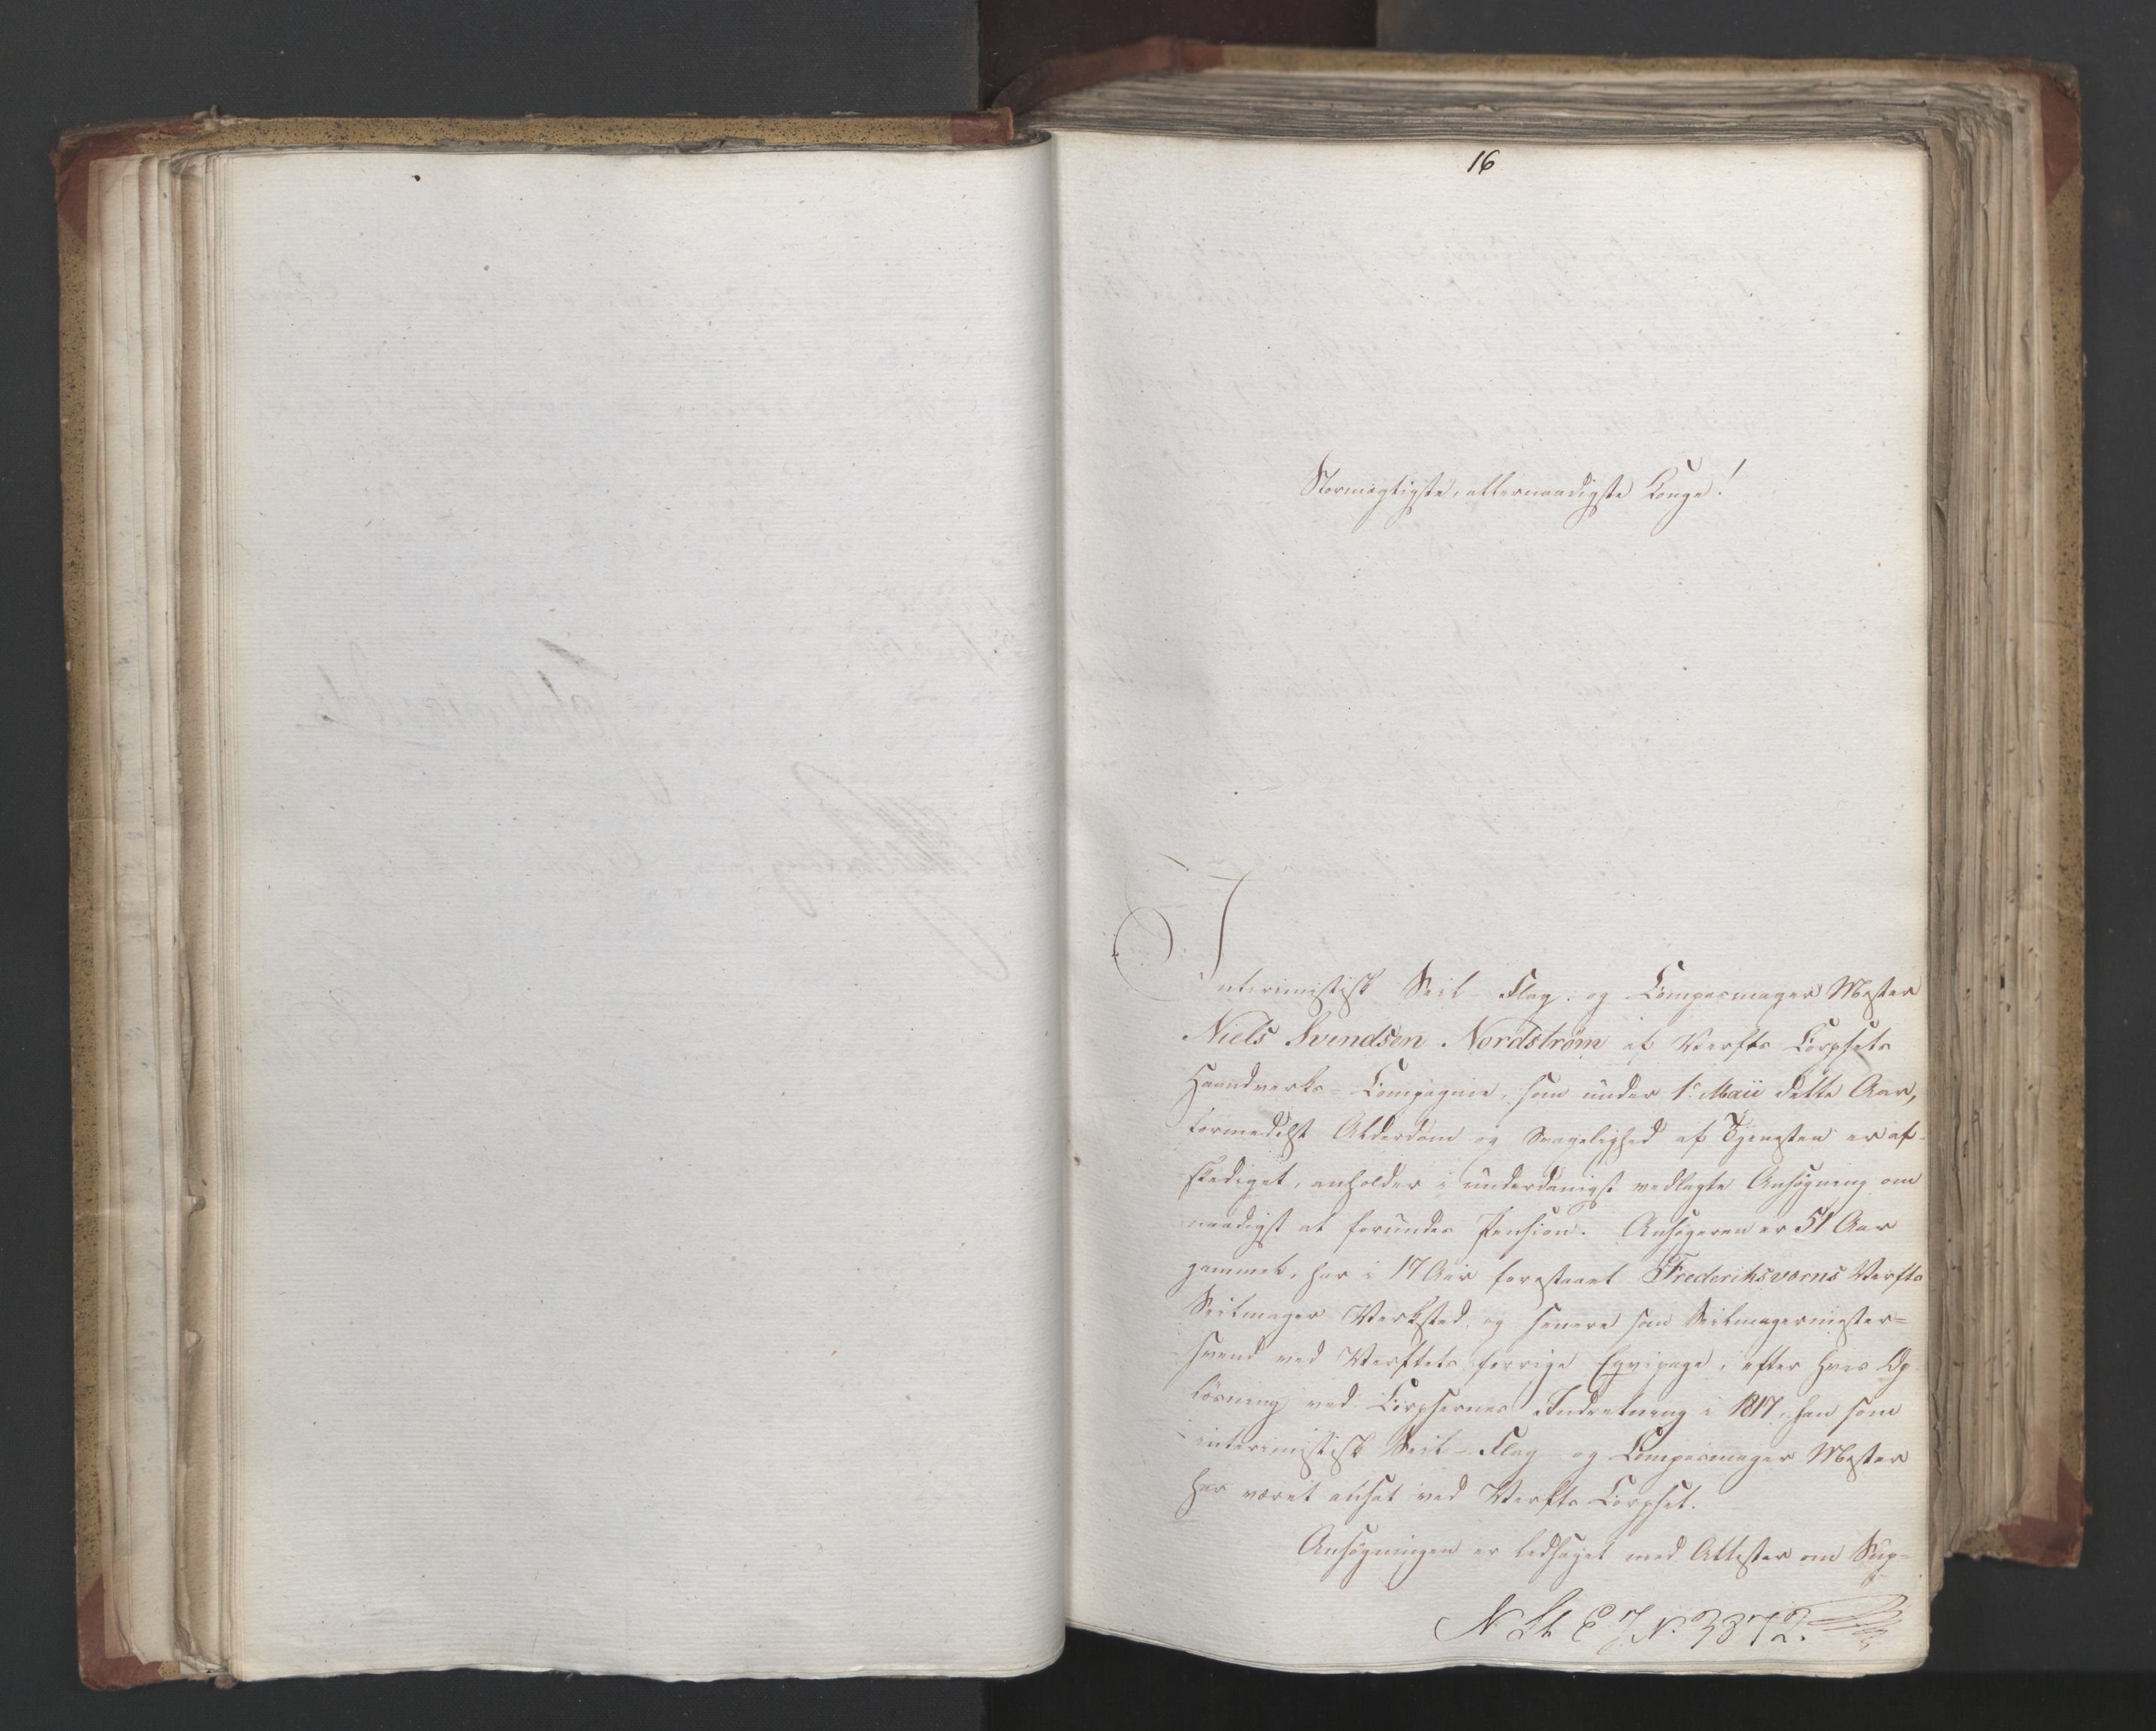 16
Stormægtigste, allernaadigste Konge!
Interimistisk Seil- Flag- og Compasmager Mester
Niels Svendsen Nordstrøm af Verfts Corpsets
Haandverks-Compagnie, som under 1ste Maii dette Aar,
formedelst Alderdom og Svagelighed af Tjenesten er af-
skediget, anholder i underdanigst vedlagte Ansøgning om
naadigst at forundes Pension. Ansøgeren er 51 Aar
gammel, har i 17 Aar forestaaet Frederiksværns Verfts
Seilmager Verksted, og senere som Seilmagermester-
svend ved Verftets forrige Eqvipage, efter hvis Op-
løsning ved Corpsernes Indretning i 1817, han som
interimistisk Seil- Flag- og Compasmager Mester
har været ansat ved Verfts Corpset.
Ansøgningen er ledsaget med Attester om Sup-
N. St. E J. N. 3372.